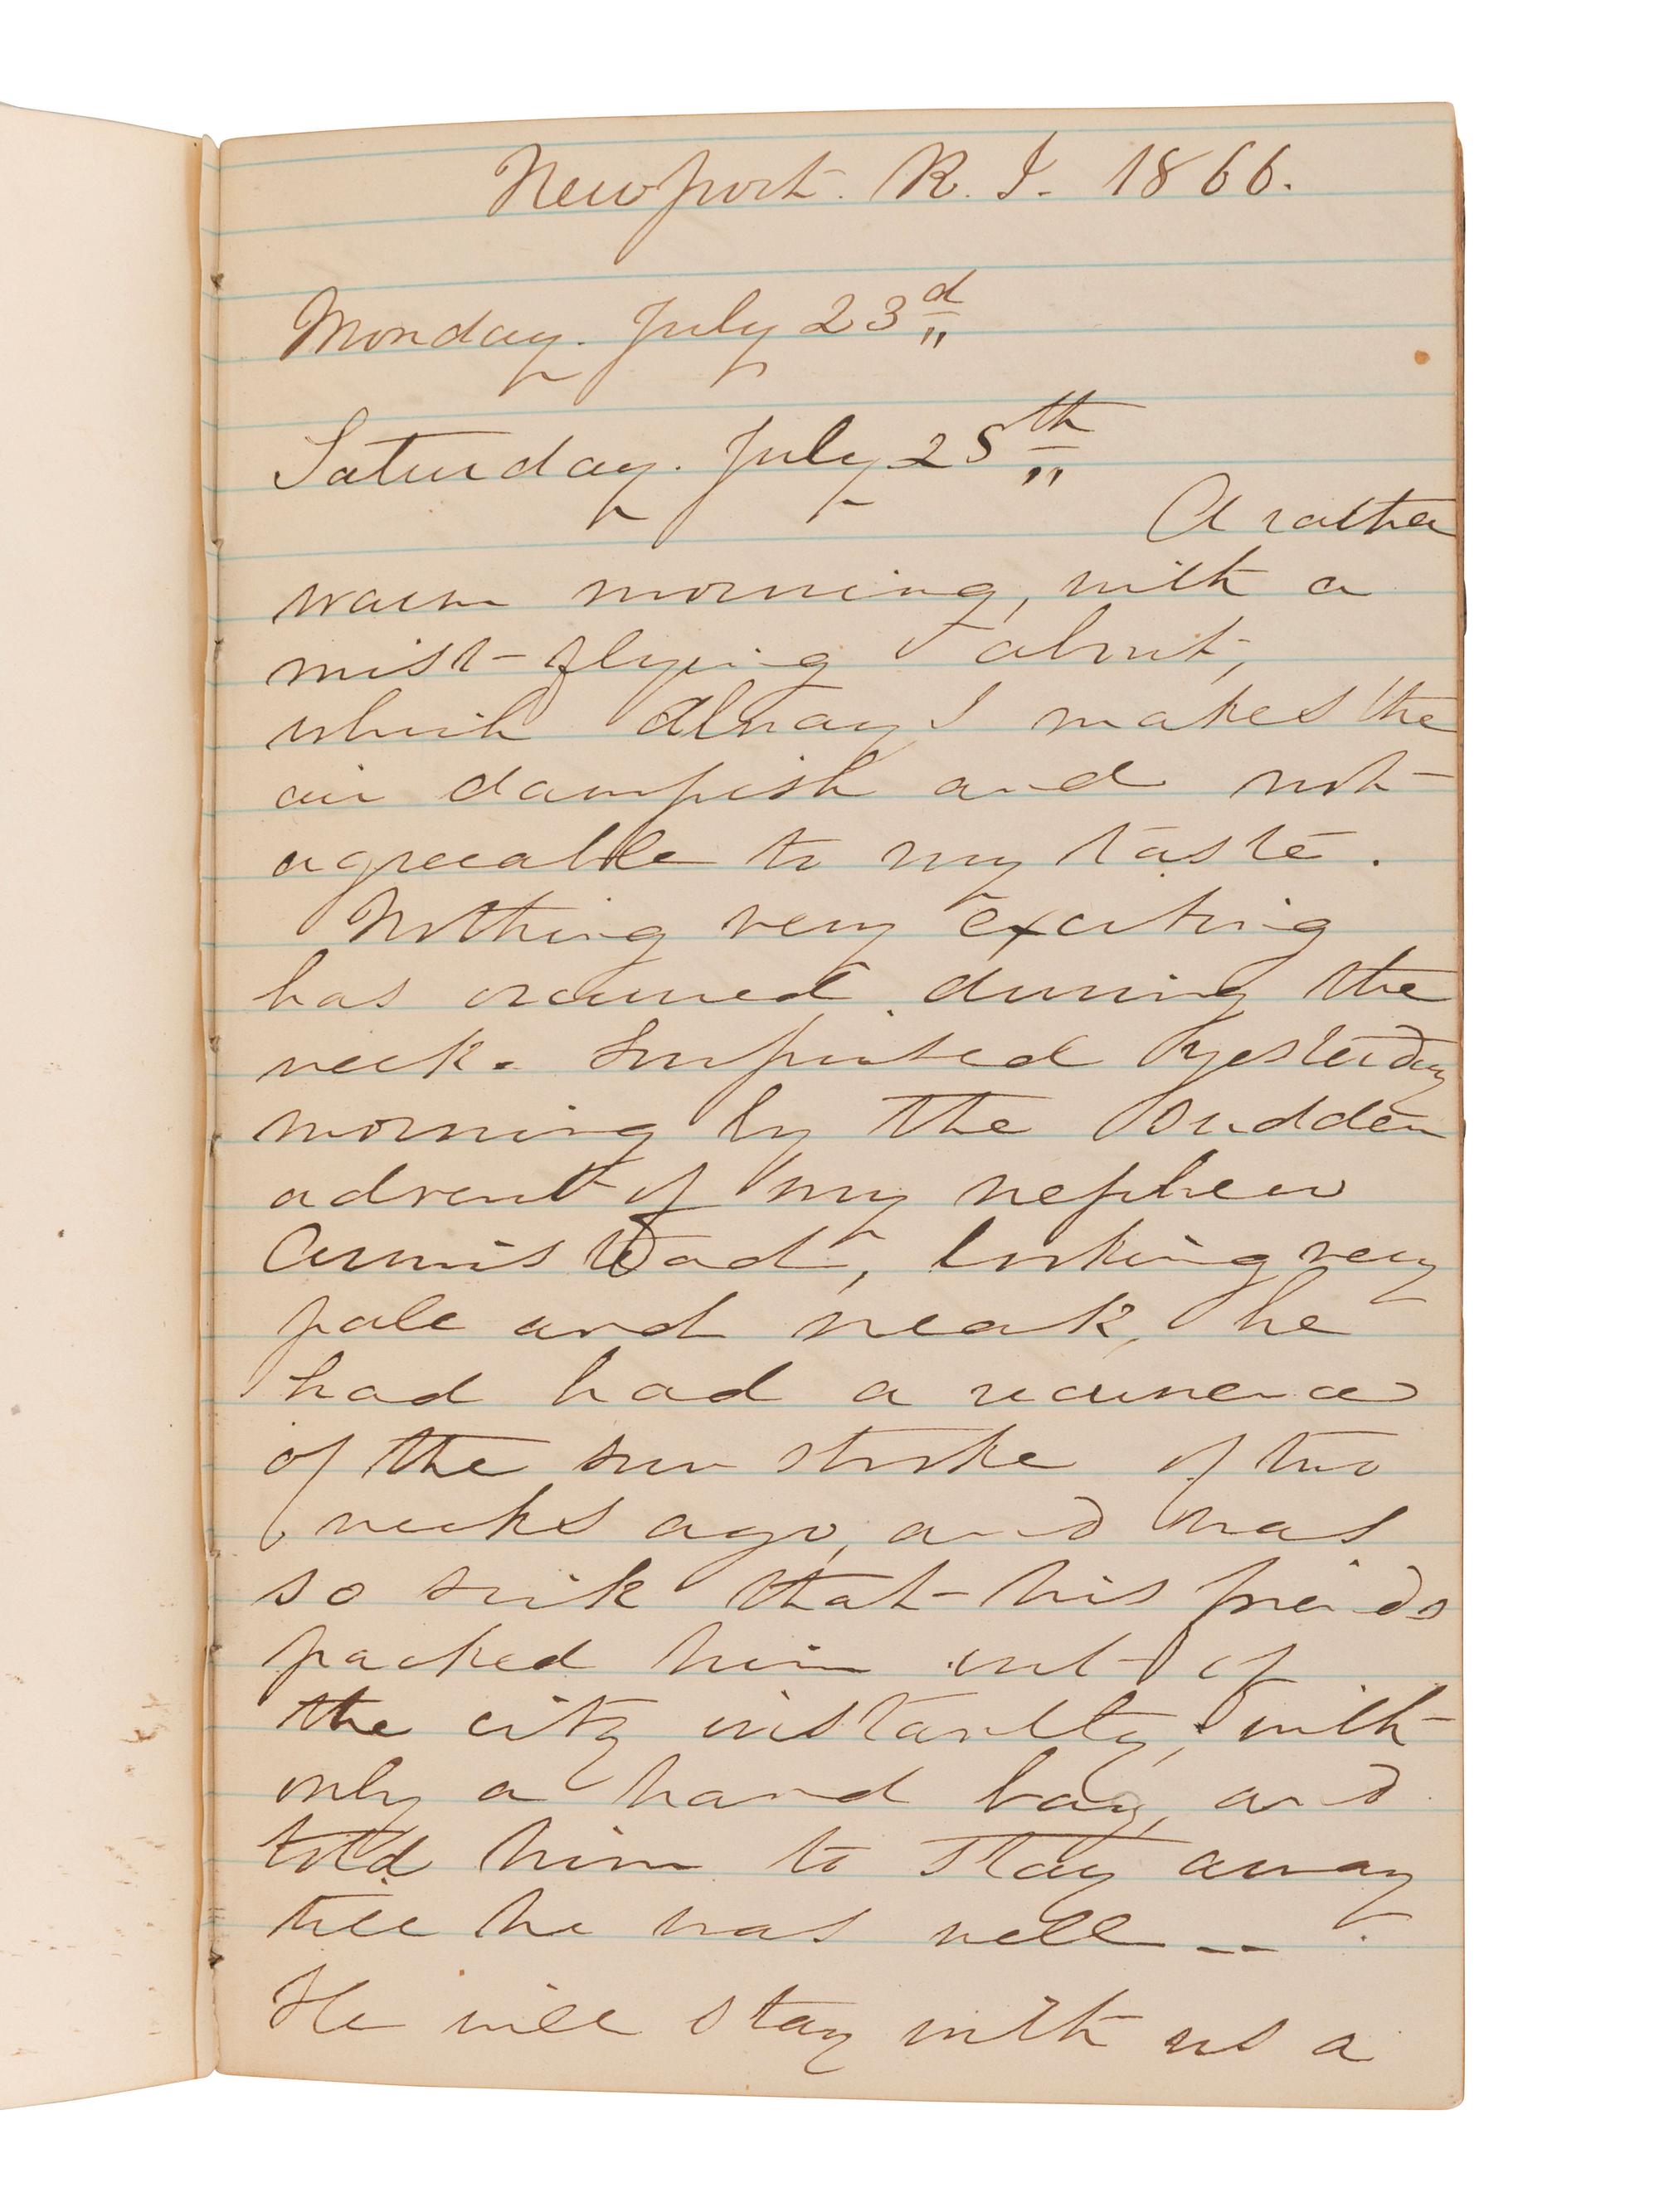 Newport. R. I. 1866.
Monday. July 23d
Saturday. July 28th
A rather
warm morning, with a
mist flying about,
which always makes the
air dampish and not
agreeable to my taste.
Nothing very exciting
has occurred during the
week. Surprised yesterday
morning by the sudden
advent of my nephew
Armistead, looking very
pale and weak, he
had had a recurrence
of the sun stroke of two
weeks ago, and was
so sick that his friends
packed him out of
the city instantly, with
only a hand bag, and
told him to stay away
till he was well --
He will stay with us a